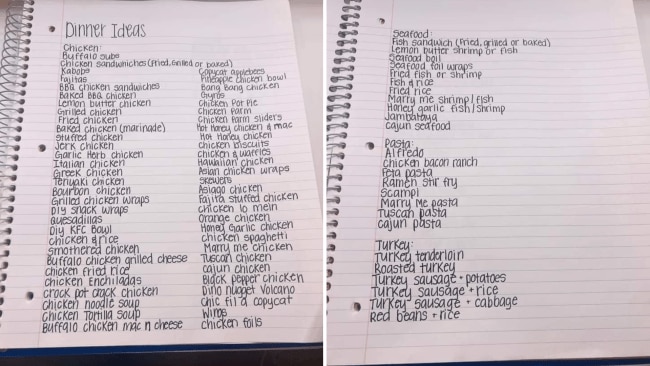 Dinner Ideas
Chicken:
Buffalo subs
Chicken sandwiches (Fried, Grilled or baked)
Kabobs
Fajitas
BBQ chicken sandwiches
Baked BBQ chicken
Lemon butter chicken
Grilled chicken
Fried chicken
Baked chicken (marinade)
Stuffed chicken
Jerk chicken
Garlic Herb chicken
Italian chicken
Greek chicken
Teriyaki chicken
Bourbon chicken
Grilled chicken wraps
DIY snack wraps
Quesadillas
DIY KFC Bowl
chicken & rice
smothered chicken
Buffalo chicken grilled cheese
chicken fried rice
chicken Enchiladas
crock pot crack chicken
chicken noodle soup
Chicken Tortilla soup
Buffalo chicken mac n cheese
Copycat applebees
Pineapple chicken bowl
Bang Bang chicken
Gyros
Chicken Pot Pie
Chicken Parm
Chicken Parm sliders
Hot Honey chicken & mac
Hot Honey chicken
chicken biscuits
chicken & waffles
Hawaiian chicken
Asian chicken wraps
skewers
Asiago chicken
Fajita stuffed chicken
chicken lo mein
Orange chicken
Honey Garlic chicken
chicken spaghetti
Marry me chicken
Tuscan chicken
cajun chicken
Black pepper chicken
Dino nugget volcano
Chic fil a copycat
Wings
chicken foils
Seafood:
Fish sandwich (Fried, grilled or baked)
Lemon butter shrimp or fish
Seafood boil
Seafood foil wraps
Fried fish or shrimp
Fish & rice
Fried rice
Marry me shrimp/fish
Honey garlic fish/shrimp
Jambalaya
cajun seafood
Pasta:
Alfredo
Chicken bacon ranch
Feta pasta
Ramen stir fry
Scampi
Marry Me pasta
Tuscan pasta
cajun pasta
Turkey:
Turkey tenderloin
Roasted turkey
Turkey sausage + potatoes
Turkey sausage + rice
Turkey sausage + cabbage
Red beans + rice